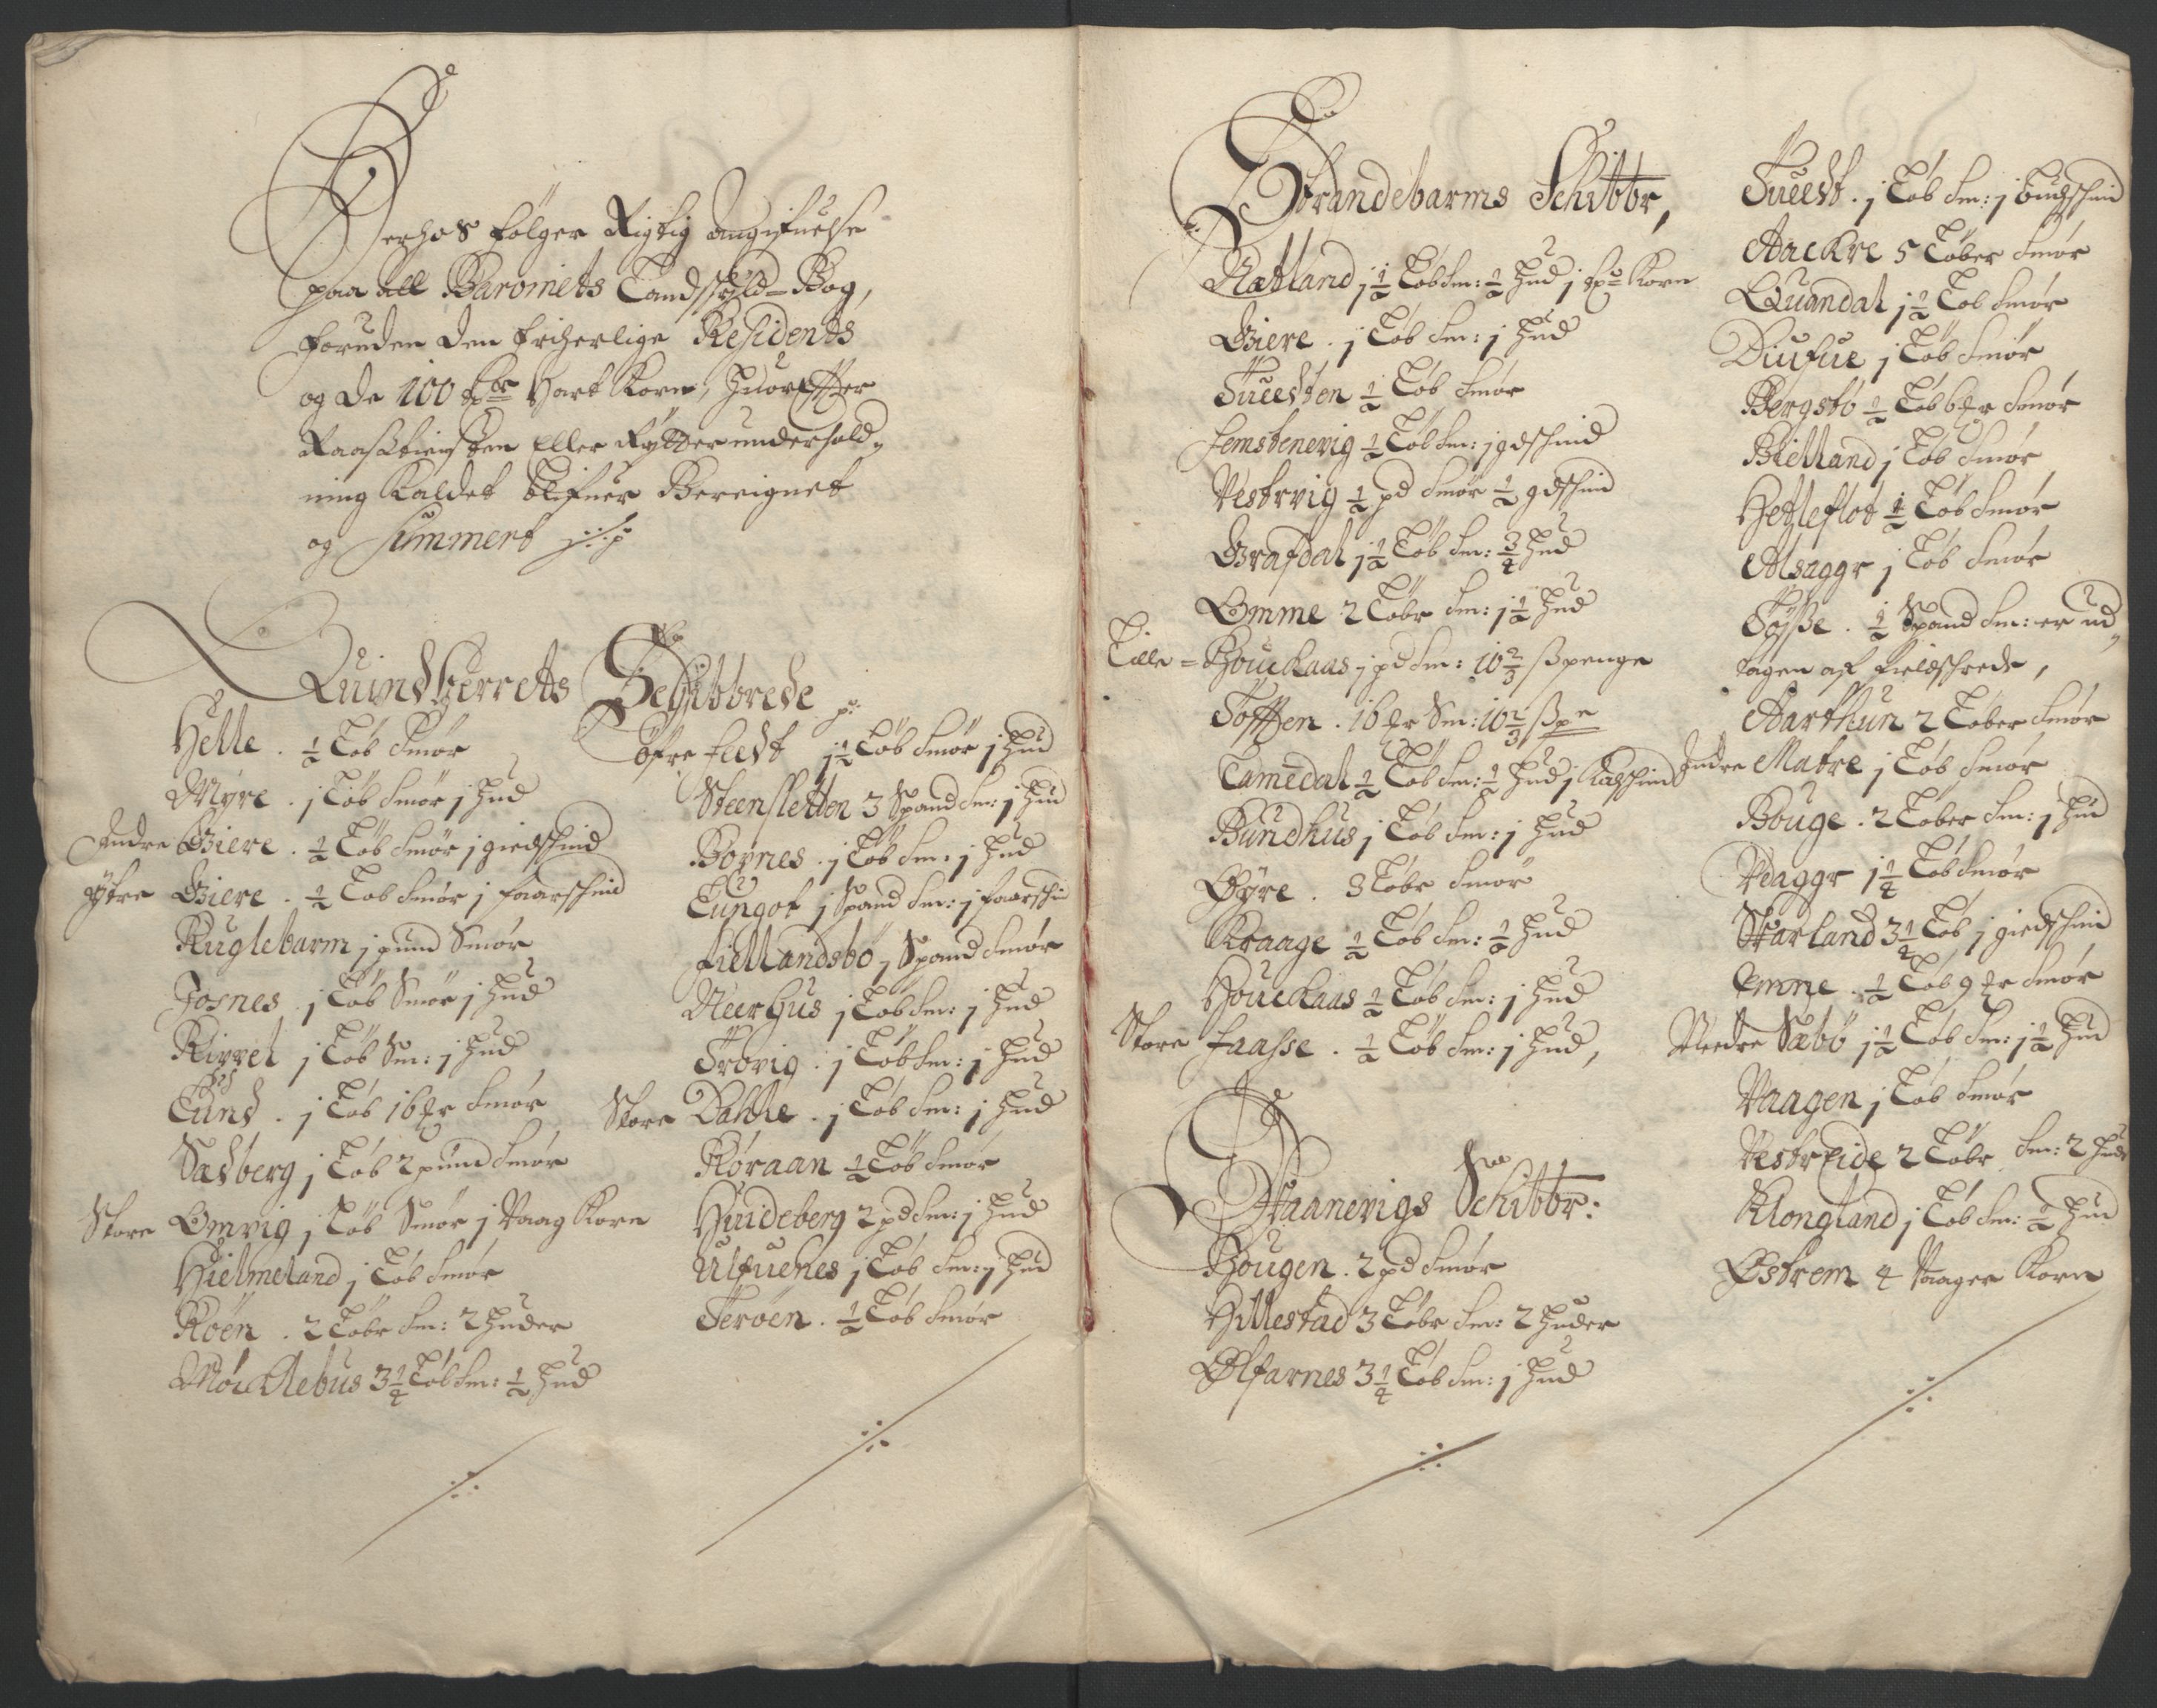 Derhos følger Rigtig angifuelse
paa all Baroniets Landskyld-Bog,
foruden den friherlige Residents
og de 100 tdr Hart Korn, huorefter
Roastienisten Eller Rytterunderhold-
ning Kaldet blifuer Bereignet
og Summert
Quindherrets Schibbrede
Helle . ½ Løb Smør
Myre . j Løb Smør j hud
Indre Giere . ½ Løb Smør j giedschind
ytre Giere . ½ Løb Smør j faarschind
Kuglebarm j pund Smør
Josnes . j Løb Smør j hud
Rivvel j Løb Sm: j hud
Lund . j Løb 16 mr Smør
Sædberg j Løb 2 pund Smør
Store Omvig j Løb Smør j Vaag Korn
Hielmeland j Løb Smør
Røen . 2 Løbr Sm: 2 huder
Møichlebus 3¼ Løb Sm: ½ hud
øfre Feedt j½ Løb Smør j hud
Steensletten 3 Spand Sm: j hud
Bognes . j Løb Sm: j hud
Lungot j Spand Sm: j faarschi
Fiellandsbø j Spand Smør
Neerhus j Løb Sm: j hud
Trovig . j Løb Sm: j hud
Store Dahle . j Løb Sm: j hud
Røraan ½ Løb Smør
Huideberg 2 pd Sm: j hud
Ulfuenes j Løb Sm: j hud
Terøen . ½ Løb Smør
Strandebarms Schibbr,
Nætland j½ Løb Sm: ½ hud j Korn
Giere . j Løb Sm: j hud
Tueedten ½ Løb Smør
Femstenevig ½ Løb Sm: j gdschind
Vestrvig ½ pd Smør ½ gdschind
Grafdal j½ Løb Sm: ¾ hud
Omme 2 Løbr Sm: j½ hud
Lille = Houckaas j pd Sm: 10⅔ ß penge
Tofften . 16 mr Sm: 10⅔ ß pe
Lamedal ½ Løb Sm: ½ hud j Kalschind
Bundhus j Løb Sm: j hud
Øyre . 3 Løbr Smør
Kraage ½ Løb Sm: ½ hud
Houckaas ½ Løb Sm: j hud
Store Faasse . ½ Løb Sm: j hud,
Skaanevigs Schibbr:
Hougen . 2 pd Smør
Hillestad 3 Løbr Sm: 2 huder
Ølfarnes 3¼ Løb Sm: j hud
Tueedt . j Løb Sm: j buchschind
Aackre 5 Løber Smør
Quandal j½ Løb Smør
Diufue j Løb Smør
Bergstø ½ Løb 6 mr Smør
Bielland j Løb Smør
Hetleflot ½ Løb Smør
Alsaggr j Løb Smør
Tøsse . ½ Spand Sm: er ud-
tagen af fieldschrede,
Aarthun 2 Løber Smør
Indre Matre j Løb Smør
Bouge . 2 Løber Sm: j hud
Vdaggr j¼ Løb Smør
Skarland 3¼ Løb j giedschind
Emne . ½ Løb 9 mr Smør
Needre Sæbø j½ Løb Sm: j½ hud
Vaagen j Løb Smør
Vestreide 2 Løbr Sm: 2 hudr
Klongland j Løb Sm: ½ hud
Østrem 4 Vaager Korn